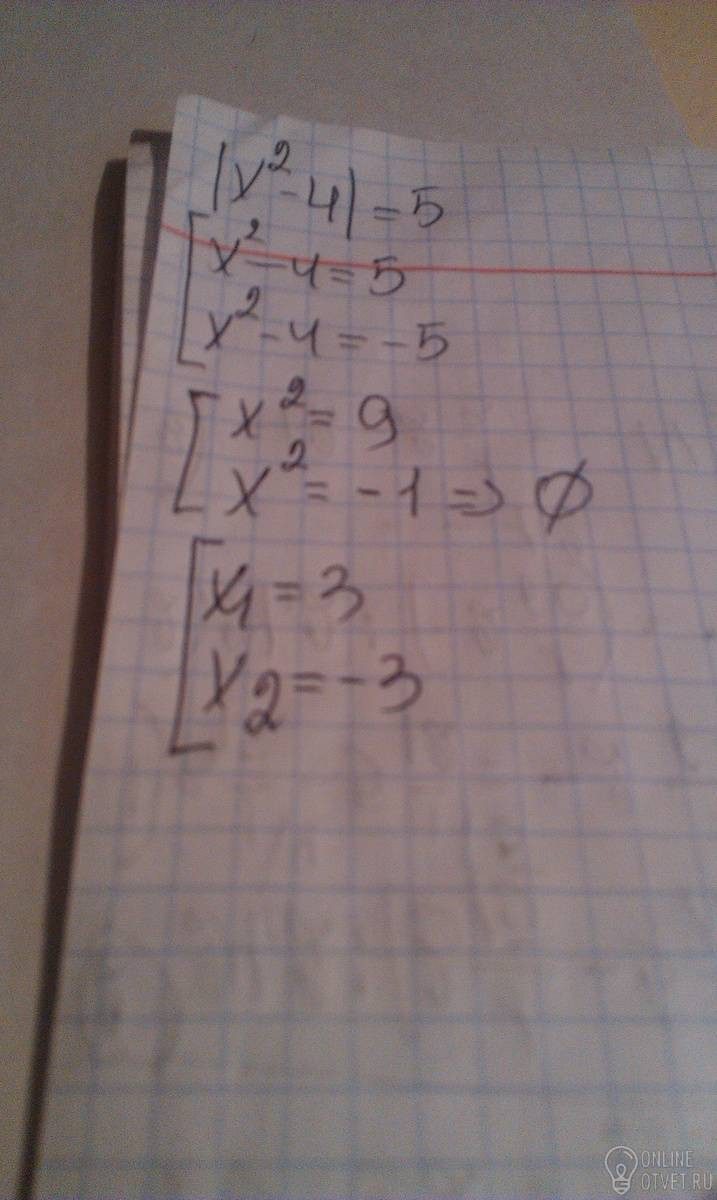 |x²-4|=5
[x²-4=5
x²-4=-5
[x²=9
x²=-1⇒∅
[x₁=3
x₂=-3
ONLINE
OTVET.RU